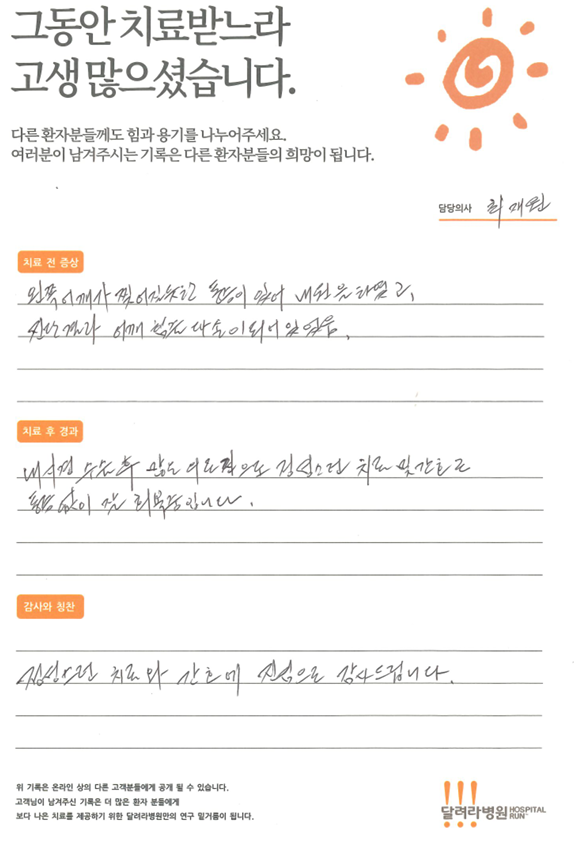 그동안 치료받느라
고생 많으셨습니다.
다른 환자분들께도 힘과 용기를 나누어주세요.
여러분이 남겨주시는 기록은 다른 환자분들의 희망이 됩니다.
담당의사 최재원
치료 전 증상
왼쪽어깨가 찢어질듯한 통증이 있어 내원을 하였고,
진단결과 어깨 힘줄 다수 이 되어 있었음.
치료 후 경과
내시경 수술후 많은 의료진의 정성스런 치료 및 간호로
통증 없이 잘 회복중입니다.
감사와 칭찬
정성스런 치료와 간호에 진심으로 감사드립니다.
위 기록은 온라인 상의 다른 고객분들에게 공개 될 수 있습니다.
고객님이 남겨주신 기록은 더 많은 환자 분들에게
보다 나은 치료를 제공하기 위한 달려라병원만의 연구 밑거름이 됩니다.
달려라병원 HOSPITAL RUN